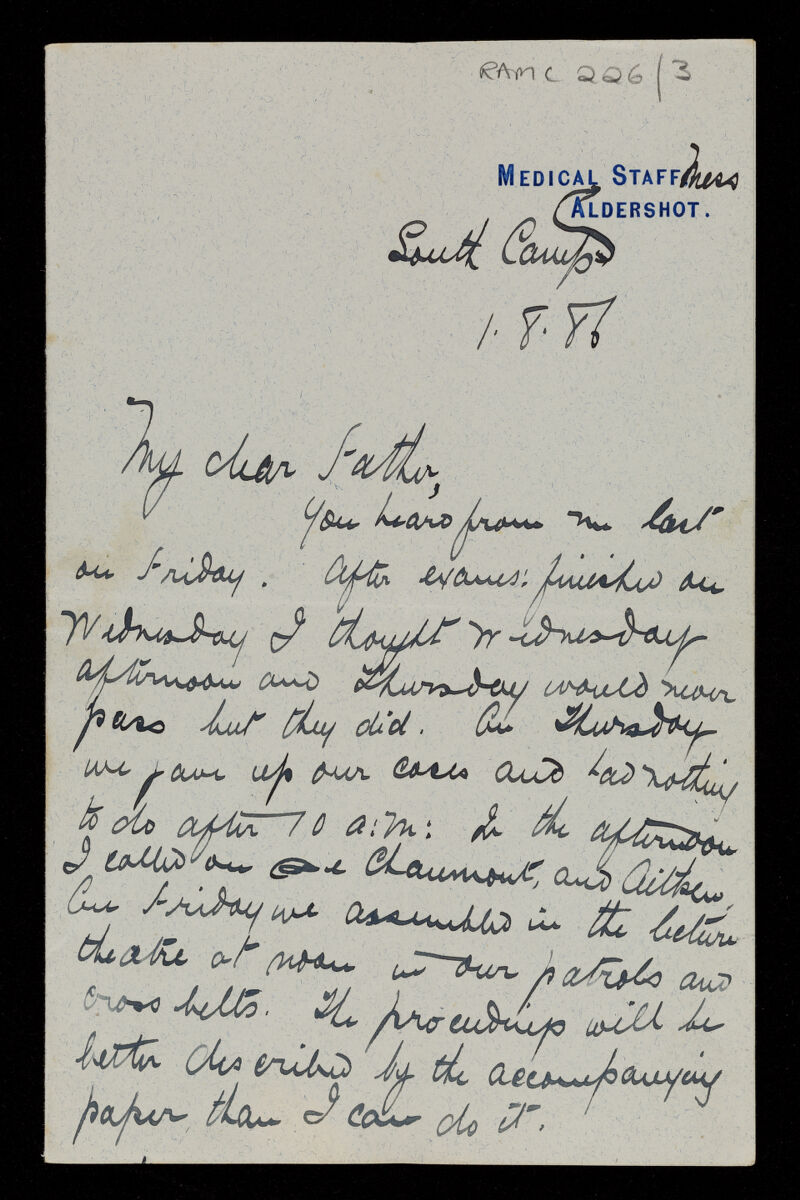 RAMC 226/3
MEDICAL STAFF Mess
ALDERSHOT.
South Camp
1.8.86
My dear Father,
You heard from me last
on Friday. After exams: finished on
Wednesday I thought Wednesday
afternoon and Thursday would never
pass but they did. On Thursday
we gave up our cases and had nothing
to do after 10 a:m: In the afternoon
I called on de Chaumont, and Aitken.
On Friday we assembled in the lecture
theatre at noon in our patrols and
cross belts. The proceedings will be
better described by the accompanying
paper than I can do it.